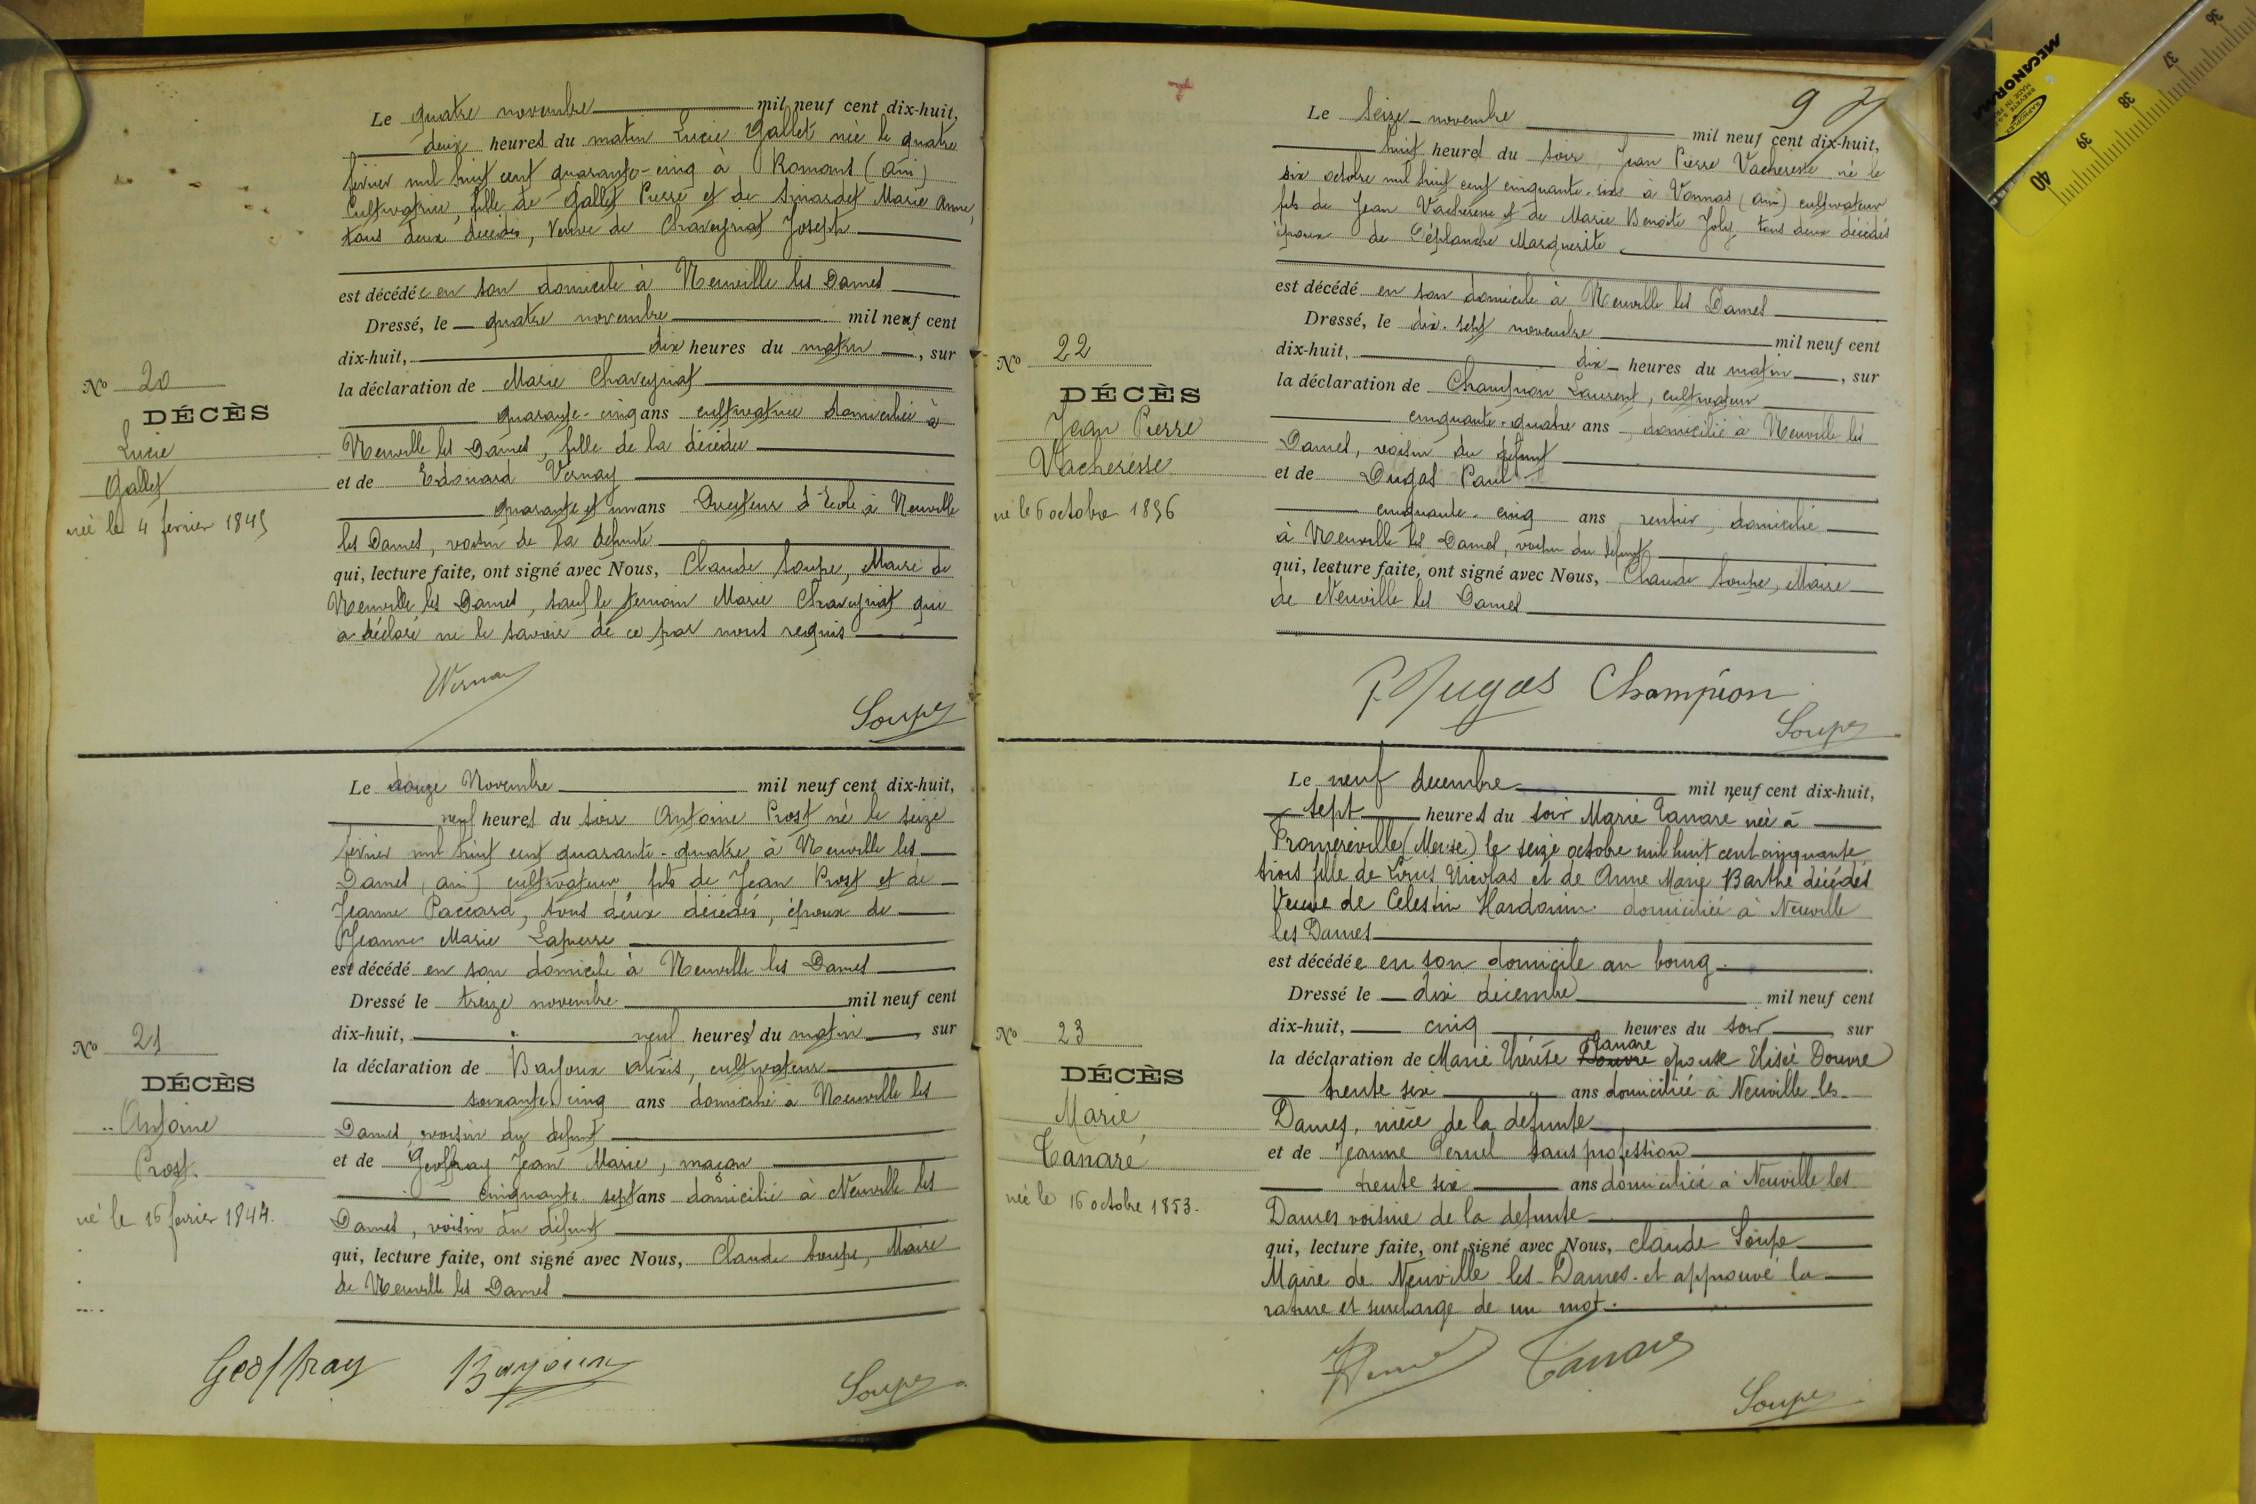 Le quatre novembre mil neuf cent dix-huit,
deux heures du matin Lucie Gallet née le quatre
février mil huit cent quarante-cinq à Romans (Ain)
Cultivatrice, fille de Gallet Pierre et de Sinardet Marie Anne,
tous deux décédés, Veuve de Chaveyriat Joseph
est décédée en son domicile à Neuville les Dames
Dressé, le quatre novembre mil neuf cent
dix-huit, dix heures du matin, sur
la déclaration de Marie Chaveyriat
quarante-cinq ans cultivatrice domiciliée à
Neuville les Dames, fille de la décédée
et de Edouard Vernay
quarante et un ans Directeur d'Ecole à Neuville
les Dames, voisin de la défunte
qui, lecture faite, ont signé avec Nous, Claude Soupe, Maire de
Neuville les Dames, sauf le témoin Marie Chaveyriat qui
a déclaré ne le savoir de ce par nous requis
No 20
DÉCÈS
Lucie
Gallet
née le 4 fevrier 1845
Vernay
Soupe
Le douze Novembre mil neuf cent dix-huit,
neuf heures du soir Antoine Prost né le seize
février mil huit cent quarante-quatre à Neuville les
Dames (Ain) cultivateur, fils de Jean Prost et de
Jeanne Paccard, tous deux décédés, époux de
Jeanne Marie Lapierre
est décédé en son domicile à Neuville les Dames
Dressé le treize novembre mil neuf cent
dix-huit, neuf heures du matin, sur
la déclaration de Bayoux Alexis, cultivateur
soixante cinq ans domicilié à Neuville les
Dames, voisin du défunt
et de Geoffray Jean Marie, maçon
cinquante sept ans domicilié à Neuville les
Dames, voisin du défunt
qui, lecture faite, ont signé avec Nous, Claude Soupe, Maire
de Neuville les Dames
No 21
DÉCÈS
Antoine
Prost.
né le 16 fevrier 1844.
Geoffray
Soupe
9
Le Seize novembre mil neuf cent dix-huit,
huit heures du soir, Jean Pierre Vacheresse né le
six octobre mil huit cent cinquante-six à Vonnas (Ain) cultivateur
fils de Jean Vacheresse et de Marie Benoite Joly tous deux décédés
époux de Déplanche Marguerite
est décédé en son domicile à Neuville les Dames
Dressé, le dix-sept novembre mil neuf cent
dix-huit, dix heures du matin, sur
la déclaration de Champion Laurent, cultivateur
cinquante-quatre ans domicilié à Neuville les
Dames, voisin du défunt
et de Dugas Paul
cinquante-cinq ans rentier, domicilié
à Neuville les Dames, voisin du défunt
qui, lecture faite, ont signé avec Nous, Claude Soupe, Maire
de Neuville les Dames
No 22
DÉCÈS
Jean Pierre
Vacheresse
né le 6 octobre 1856
P Dugas Champion
Soupe
Le neuf decembre mil neuf cent dix-huit,
sept heures du soir Marie Tanare née à
(Meuse) le seize octobre mil huit cent cinquante
trois fille de Louis Nicolas et de Anne Marie Barthe décédés
Veuve de Celestin Hardouin domiciliée à Neuville
les Dames
est décédée en son domicile au bourg.
Dressé le dix décembre mil neuf cent
dix-huit, cinq heures du soir sur
Tanare
la déclaration de Marie Thérèse Douvre épouse Elisée Douvre
trente six ans domiciliée à Neuville les
Dames, nièce de la defunte
et de Jeanne Pernel sans profession
trente six ans domiciliée à Neuville les
Dames voisine de la defunte
qui, lecture faite, ont signé avec Nous, Claude Soupe
Maire de Neuville les-Dames. et approuvé la
rature et surcharge de un mot.
No 23
DÉCÈS
Marie
Tanaré
née le 16 octobre 1853.
Tanare
Soupe
MECANORMA
36
37
38
39
40